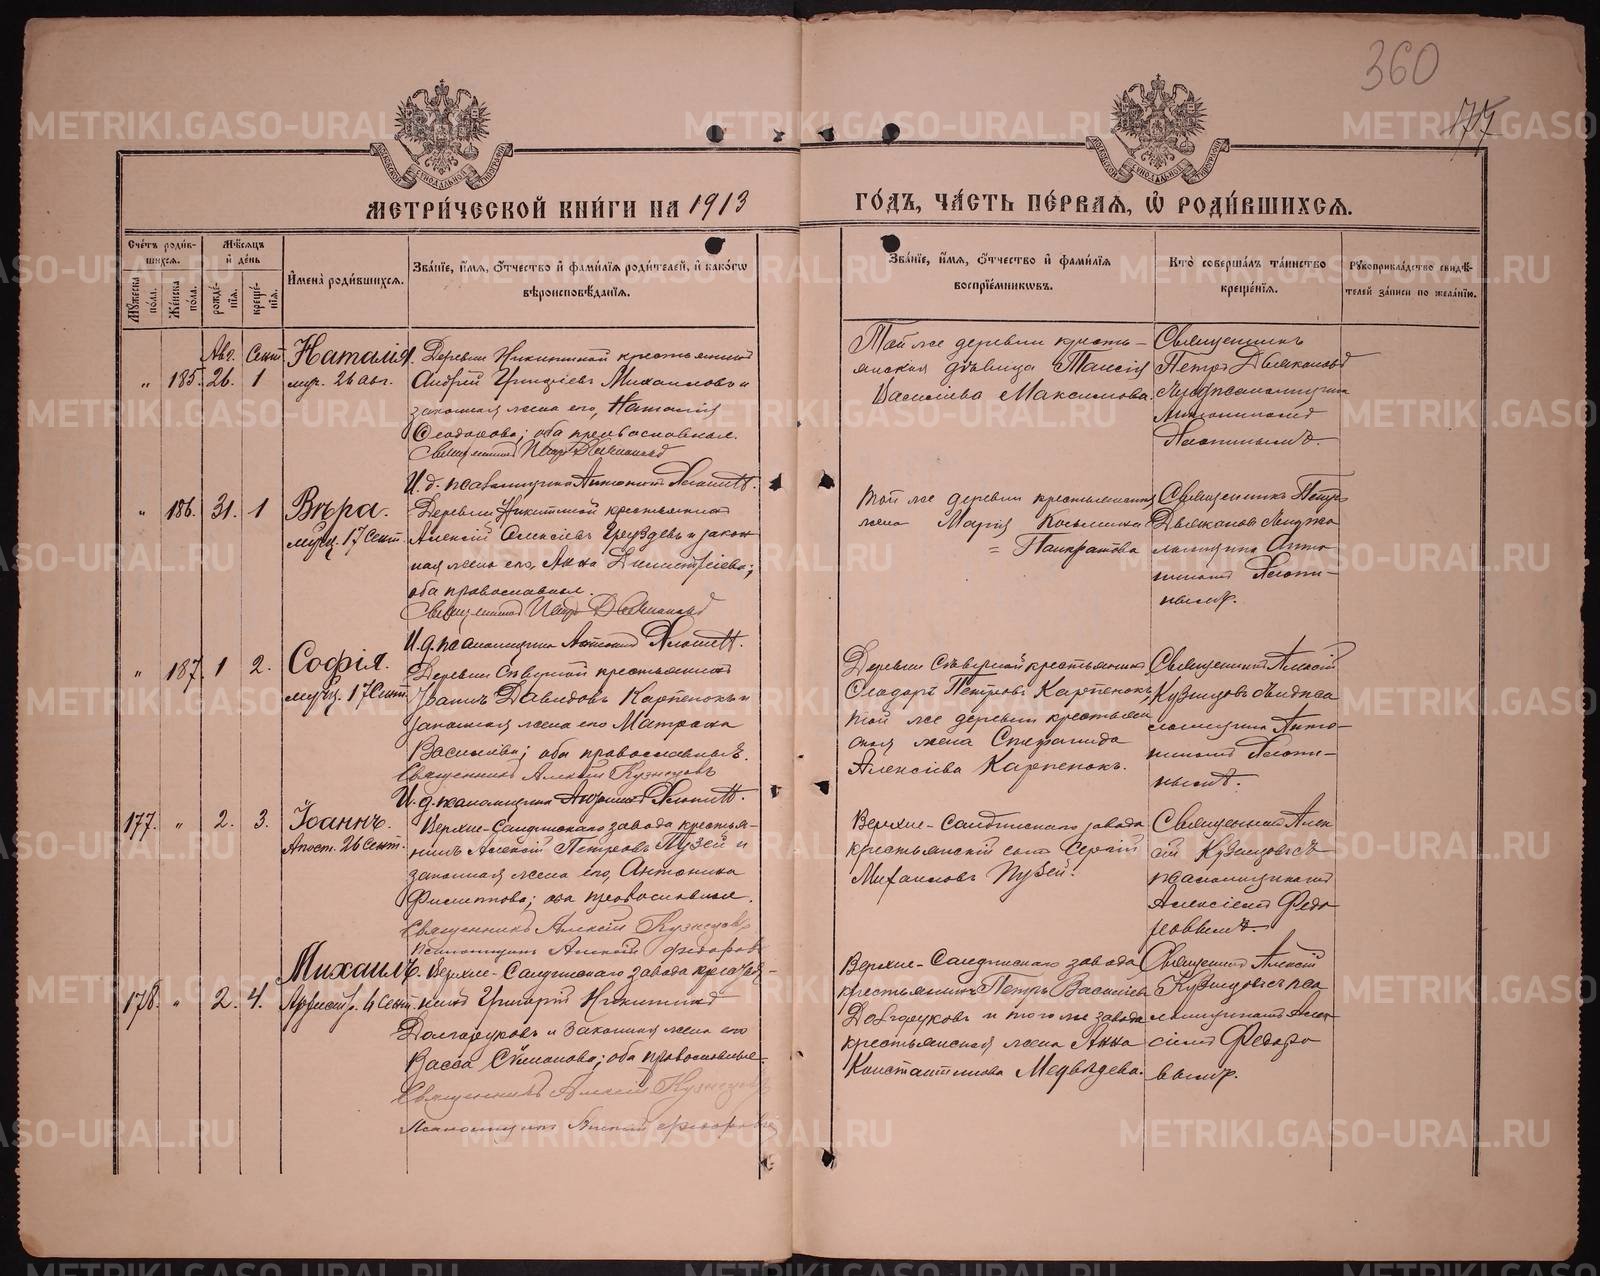 360
177
МЕТРИ́ЧЕСКОЙ КНИ́ГИ НА 1913
ГО́ДЪ, ЧА́СТЬ ПЕ́РВАЯ, Ѡ РОДИ́ВШИХСЯ.
Сче́тъ роди́в-
шихся.
Му́жеска по́ла.
Же́нска по́ла.
Мѣ́сяцъ
и҆ де́нь
рожде́нїя.
креще́нїя.
И҆мена̀ роди́вшихся.
Зва́нїе, и҆́мя, ѻ҆́тчество и҆ фами́лїя роди́телей, и҆ како́гѡ
вѣроисповѣ́данїя.
Зва́нїе, и҆́мя, ѻ҆́тчество и҆ фами́лїя
воспрїе́мниковъ.
Кто̀ соверша́лъ та́инство
креще́нїя.
Рꙋкоприкла́дство свидѣ́-
телей за́писи по жела́нїю.
Авг. Сент.
" 185. 26. 1
Наталія.
муч. 26 авг.
Деревни Никитиной крестьянинъ
Андрей Михайловъ и
законная жена его, Наталія
Ѳеодорова; оба православные.
Священникъ Петръ
Той же деревни кресть-
янская дѣвица Таисія
Васильева Максимова.
Священникъ
Петръ
" 186. 31. 1
Вѣра.
муч. 17 Сент.
Деревни Никитиной крестьянинъ
Алексій Алексѣевъ и закон
ная жена его, Анна Димитріева;
оба православные.
Священникъ Петръ
Той же деревни крестьянина
жена Марія Косьмина
= Панкратова
Священникъ Петръ
" 187. 1 2.
Софія.
муч. 17 Сент.
Деревни Сѣверной крестьянинъ
Іоаннъ Давидовъ Карпенокъ и
законная жена его Матрона
Васильева; оба православные.
Священникъ Алексій Кузнецовъ
Деревни Сѣверной крестьянинъ
Ѳеодоръ Петровъ Карпенокъ,
той же деревни крестьян
ская жена Степанида
Алексіева Карпенокъ.
Священникъ Алексій
Кузнецовъ
177. " 2. 3.
Іоаннъ.
Апост. 26 Сент.
Верхне-Салдинскаго завода крестья-
нинъ Алексій Петровъ Пузей и
законная жена его, Антонина
Филиппова; оба православные.
Священникъ Алексій Кузнецовъ
Псаломщикъ Алексій Ѳедоровъ
Верхне-Салдинскаго завода
крестьянскій сынъ Сергій
Михаиловъ Пузей.
Священникъ Алек
сій Кузнецовъ съ
псаломщикомъ
Алексіемъ Ѳедо
ровымъ.
178. " 2. 4.
Михаилъ.
Верхне-Салдинскаго завода крестья-
нинъ Григорій Никитинъ
Долгоруковъ и законная жена его
Васса Сѵмонова; оба православные.
Священникъ Алексій Кузнецовъ
Псаломщикъ Алексій Ѳедоровъ
Верхне-Салдинскаго завода
крестьянинъ Петръ Васильевъ
Долгоруковъ и того же завода
крестьянская жена Анна
Константинова Медвѣдева.
Священникъ Алексій
Кузнецовъ съ пса
ломщикомъ Алек
сіемъ Ѳедоро
вымъ.
METRIKI.GASO-URAL.RU